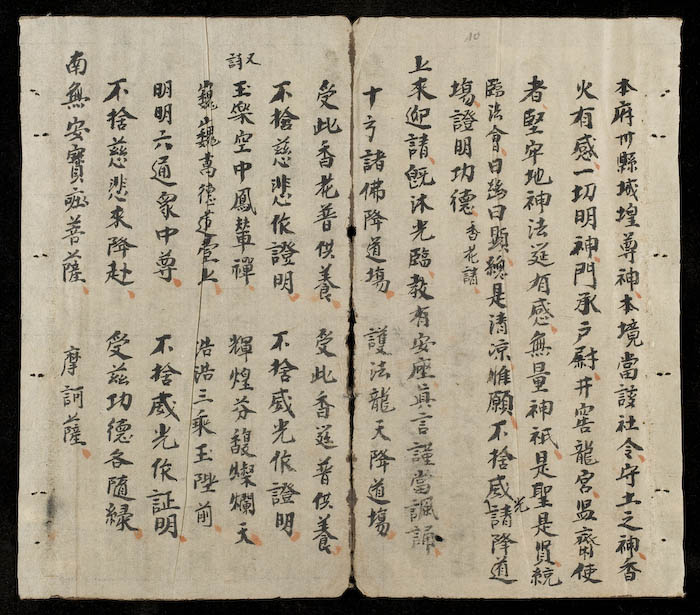 本府州縣城隍尊神本境當該社令守土之神香
火有感一切明神門承戶尉井竈龍宮監齋使
者堅牢地神法筵有感無量神祇是聖是賢統
臨法會曰臨曰顯總是清凉惟願不捨威光請降道
塲證明功德香花請
上來迎請旣沐光臨教有安座眞言謹當諷誦
十方諸佛降道塲 護法龍天降道塲
受此香花普供養 受此香筵普供養
不捨慈悲作證明 不捨威光作證明
又請
玉樂空中鳳輦禪 輝煌芬馥燦爛天
巍巍萬德臺上 浩浩三乘玉陛前
明明六通衆中尊 不捨威光作証明
不捨慈悲來降赴 受茲功德各隨緣
南無安寶座菩薩 摩訶薩